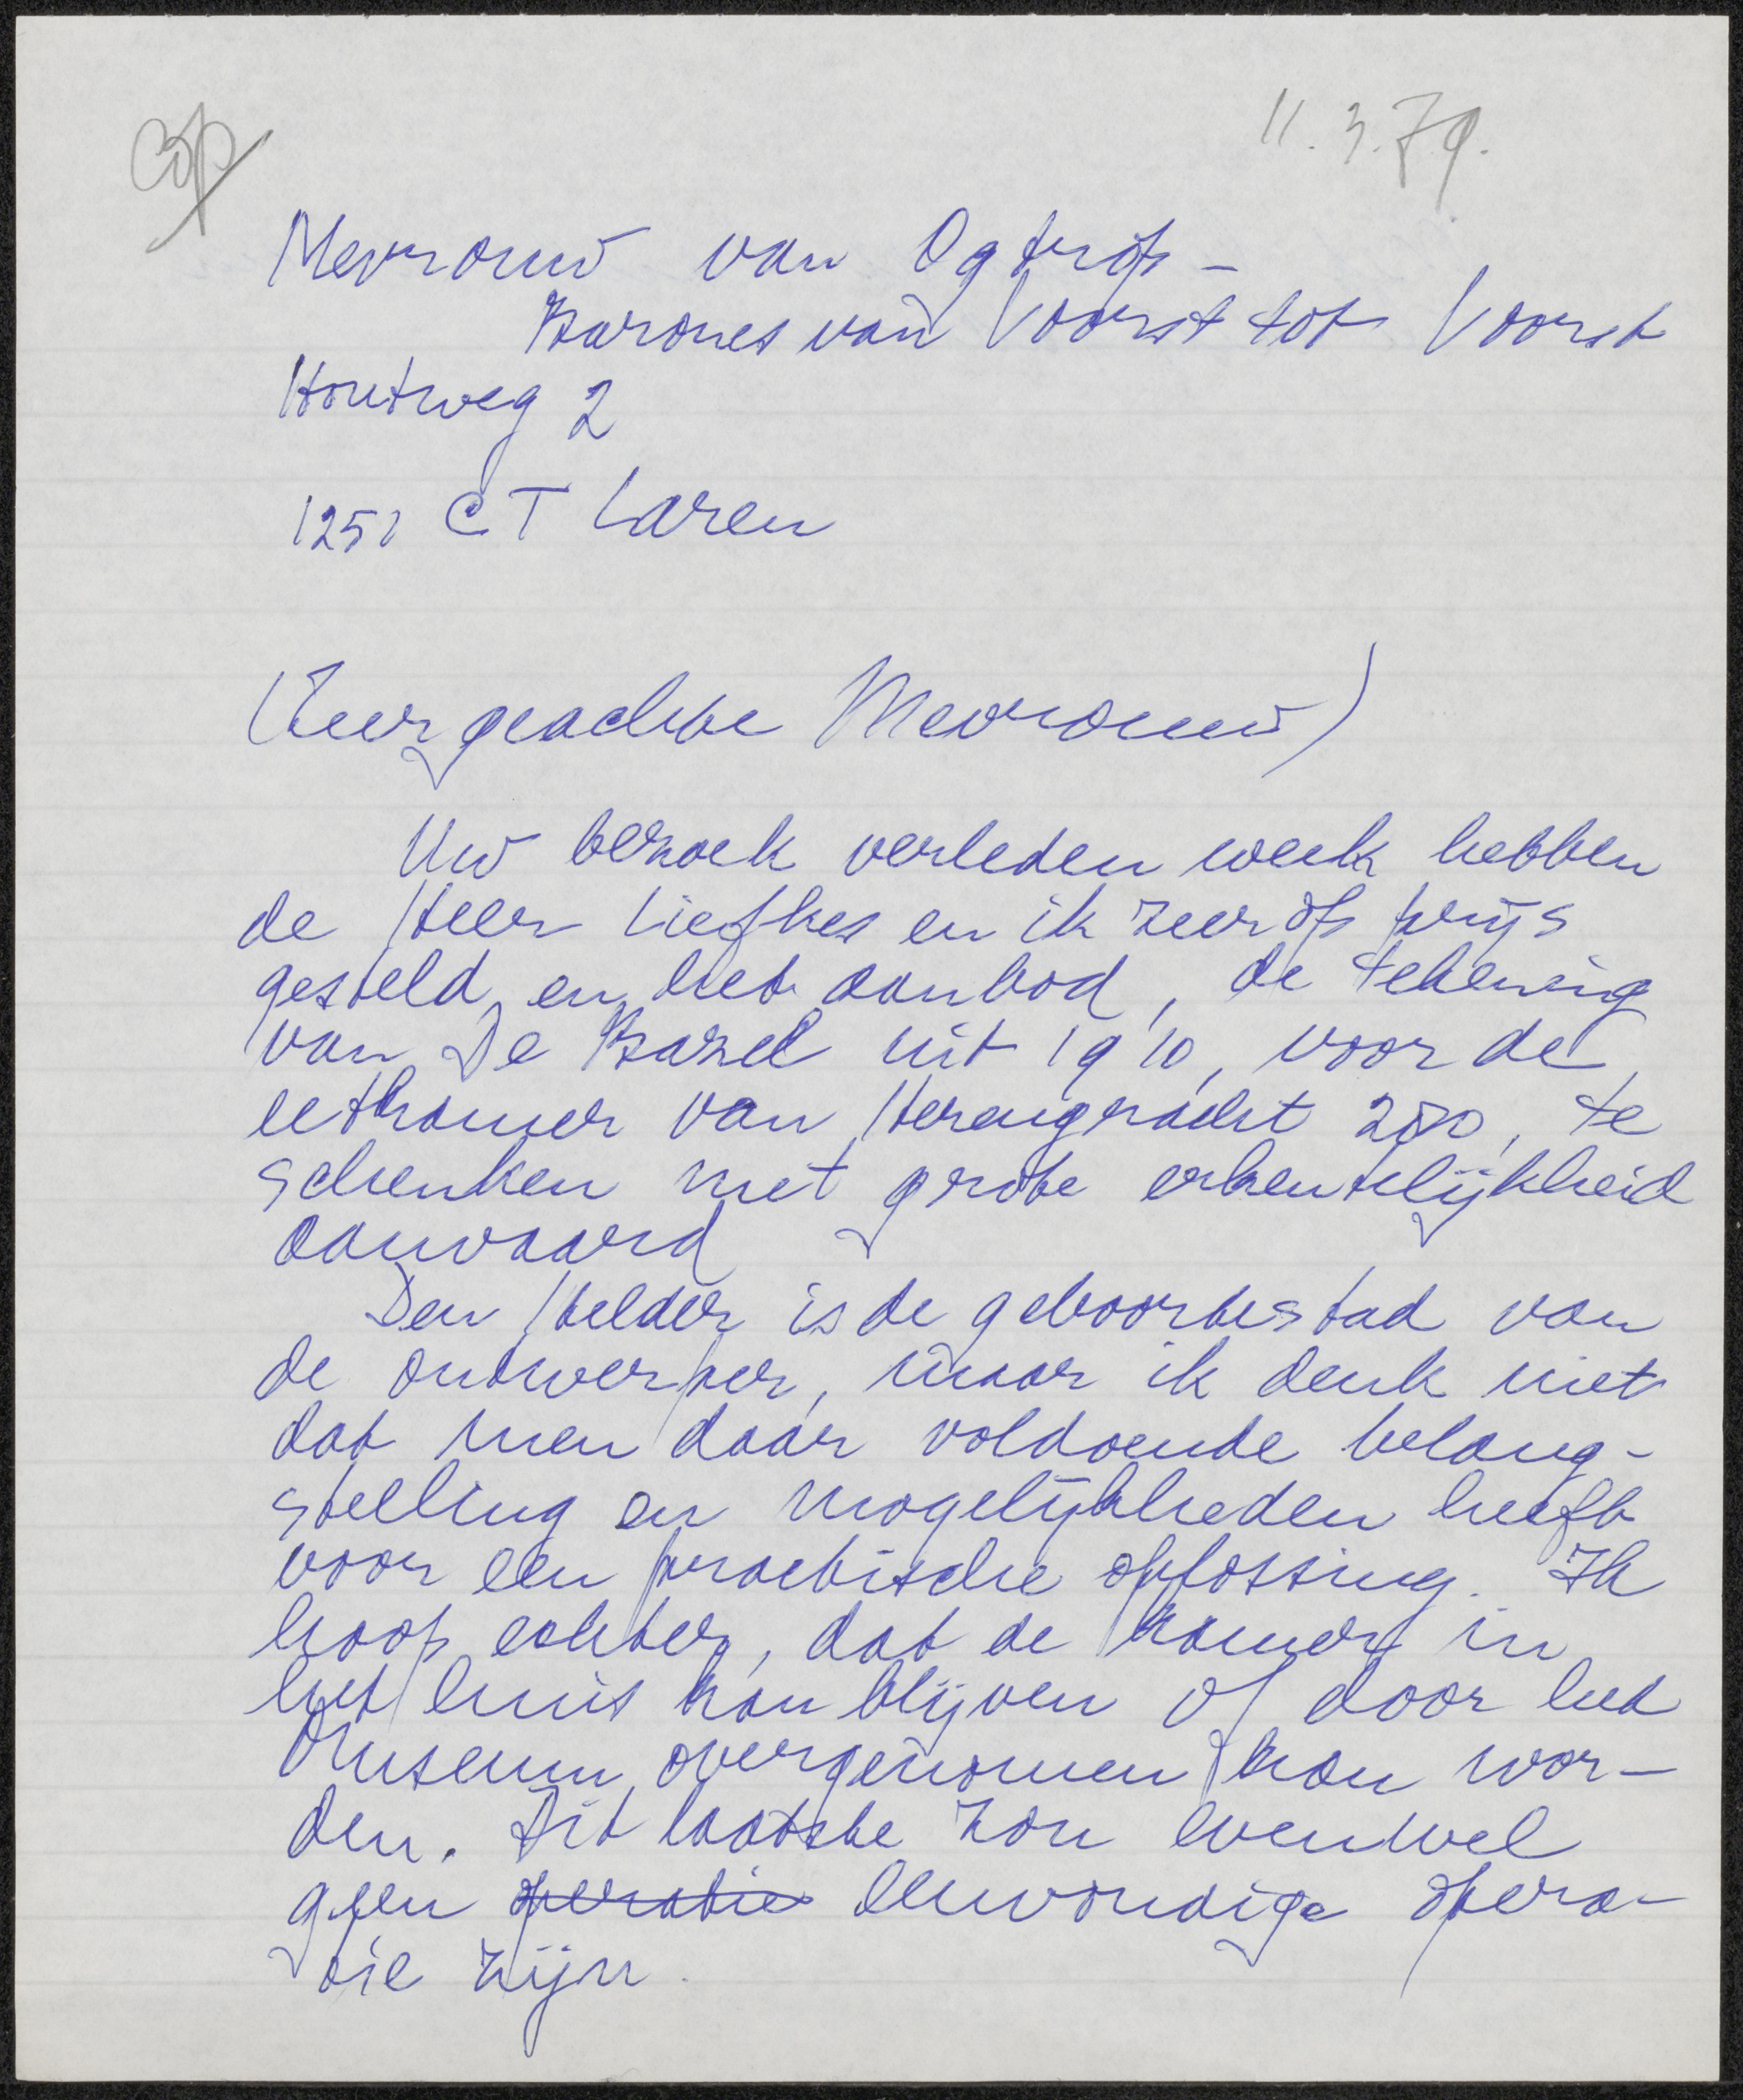 Cop
11.3.79.
Mevrouw van Ogtrop -
Barones van Voorst tot Voorst
Houtweg 2
1251 CT Laren
(Zeer geachte Mevrouw)
Uw bezoek verleden week hebben
de Heer Liefkes en ik zeer op prijs
gesteld en het aanbod, de tekening
van De Bazel uit 1910, voor de
eetkamer van Herengracht 280, te
schenken met grote erkentelijkheid
aanvaard
Den Helder is de geboortestad van
de ontwerper, maar ik denk niet
dat men daar voldoende belang-
stelling en mogelijkheden heeft
voor een practische oplossing. Ik
hoop echter, dat de kamer in
het huis kan blijven of door het
Museum overgenomen kan wor-
den. Dit laatste zou evenwel
geen operatie eenvoudige opera-
tie zijn.